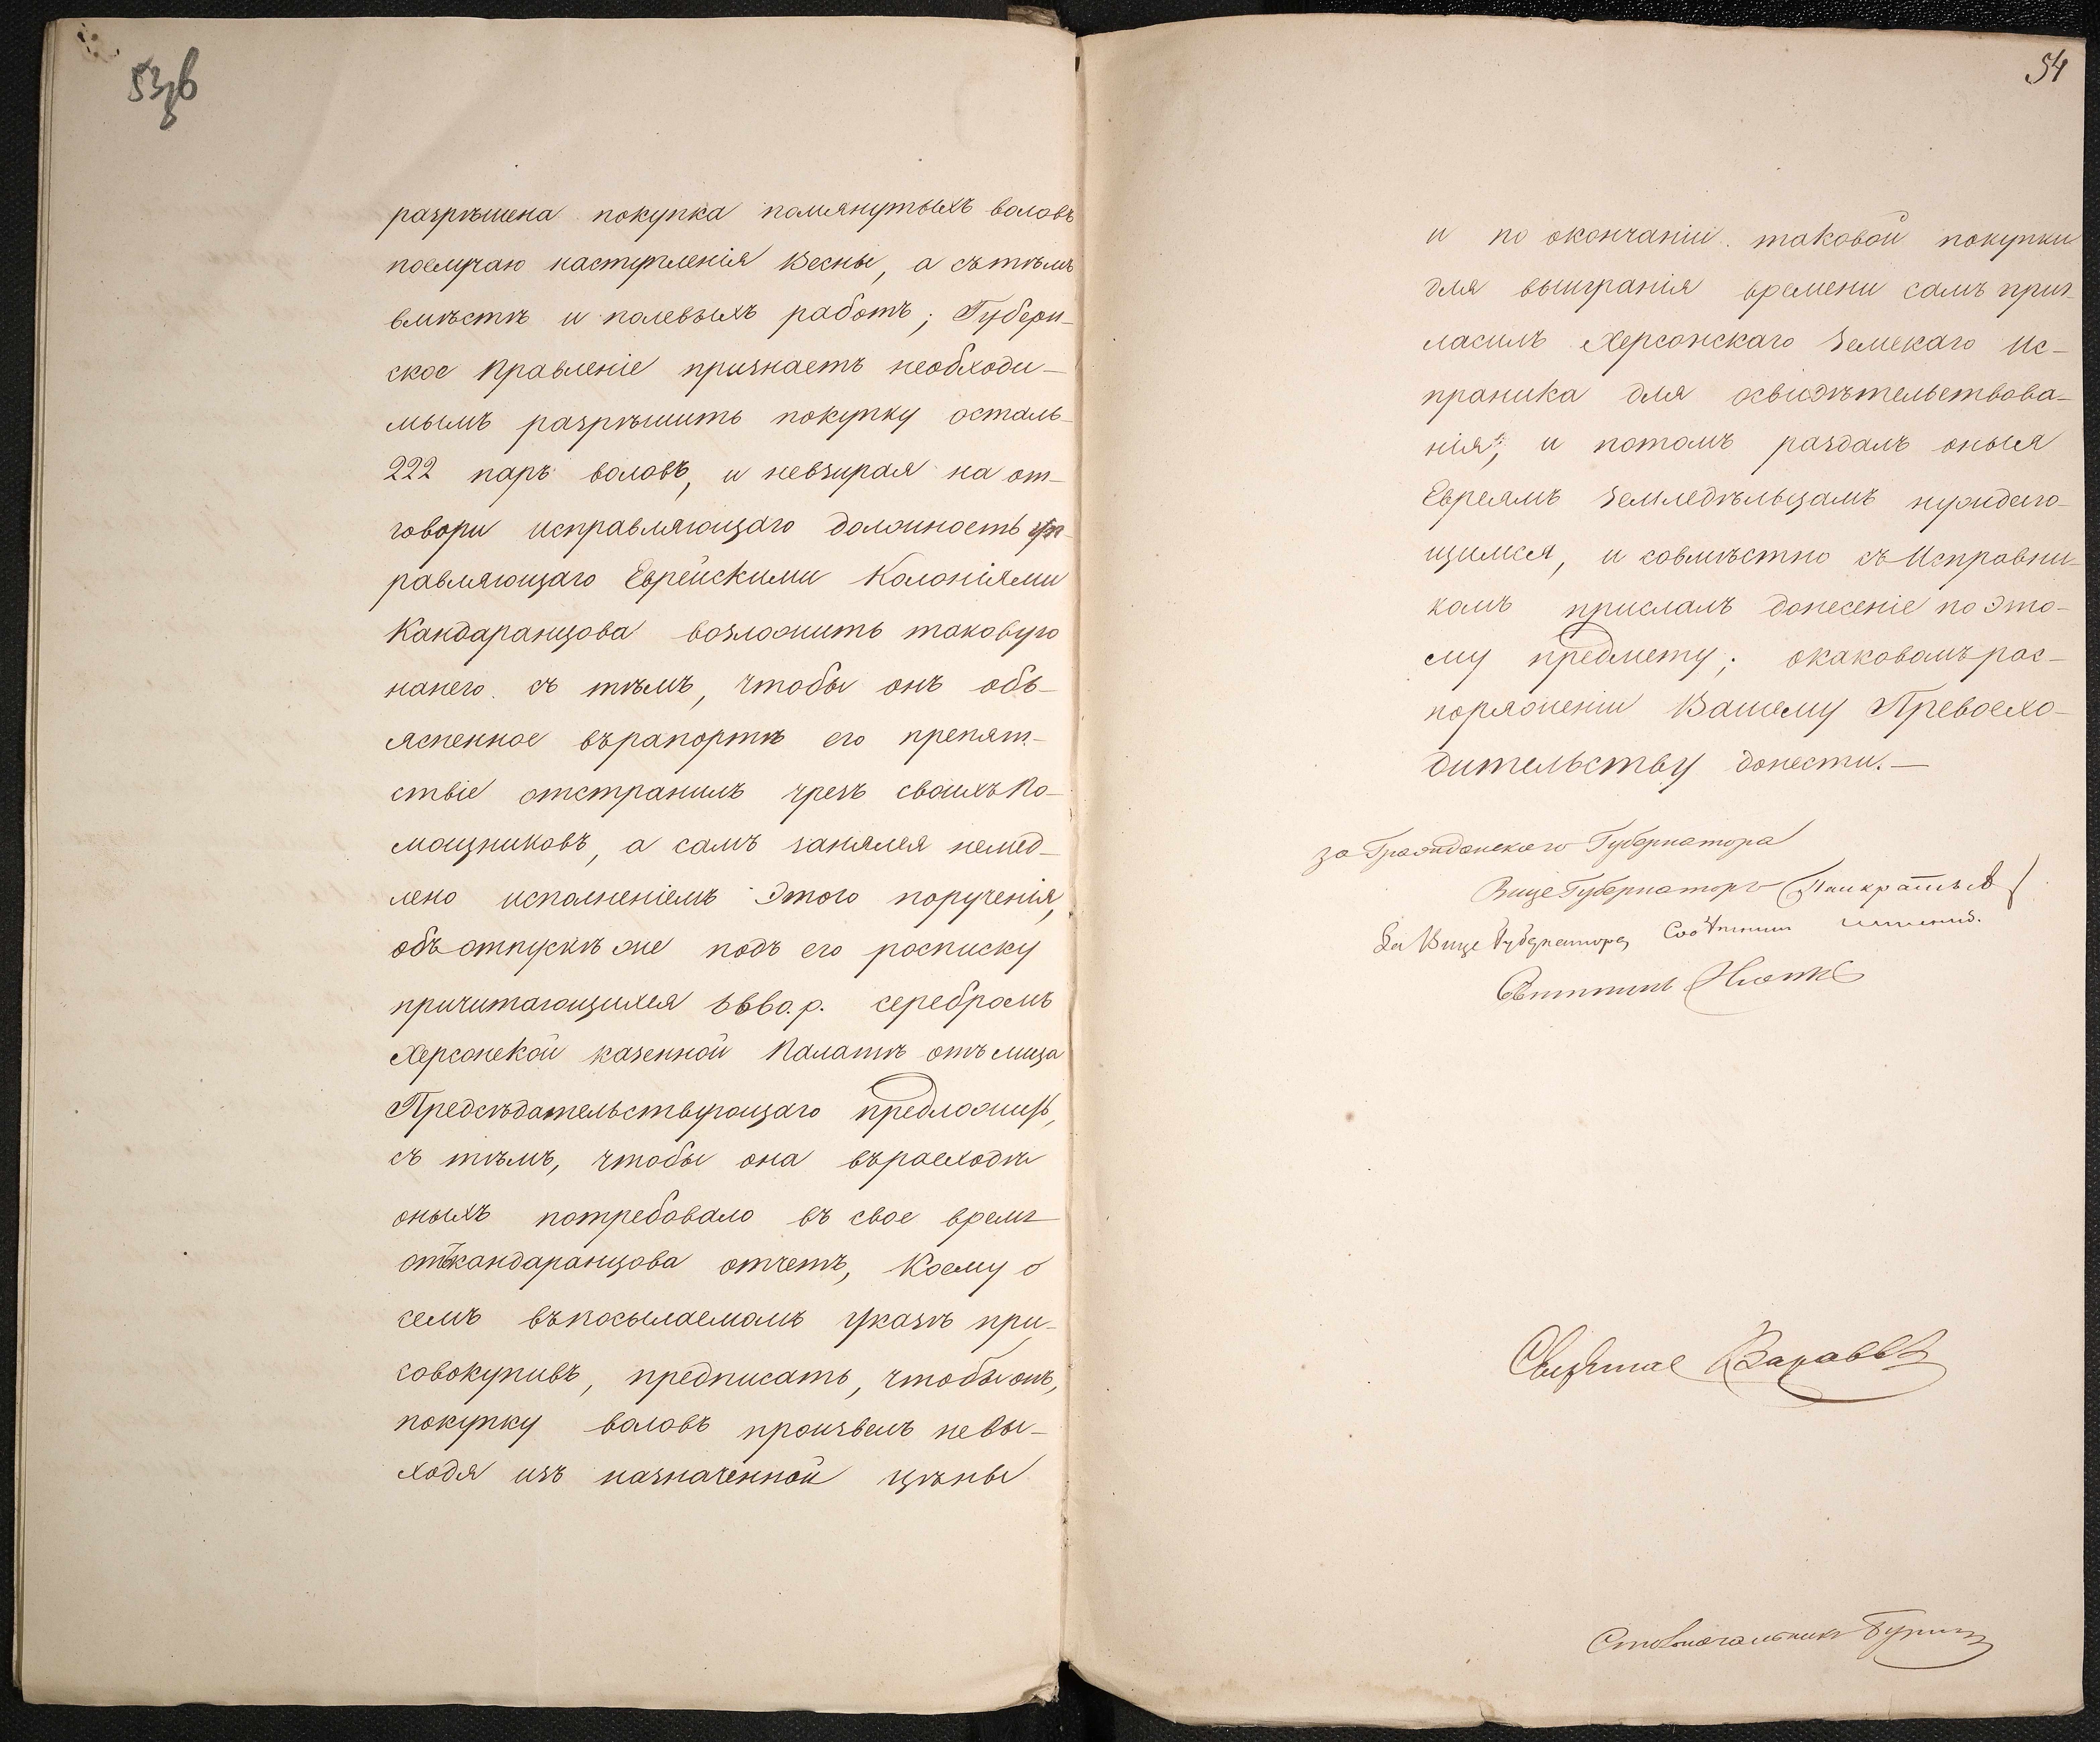 53зв
разрѣшена покупка помянутыхъ воловъ
послучаю наступленія весны, а сътѣмъ
вмѣстѣ и полевыхъ работъ; Губерн-
ское Правленіе признаетъ необходи-
мымъ разрѣшить покупку осталь-
222 паръ воловъ, и невзирая на от-
говори исправляющаго должность уп-
равляющаго Еврейскими Колоніями
Кандаранцова возложить таковую
нанего съ тѣмъ, чтобы онъ объ-
ясненное върапортѣ его препят-
ствіе отстранилъ чрезъ своихъ По-
мощниковъ, а самъ занялся немед-
лено исполненіемъ этого порученія,
объ отпускѣ же подъ его росписку
причитающихся р. серебромъ
Херсонской казенной Палатѣ отъ лица
Предсѣдательствующаго предложить,
съ тѣмъ, чтобы она върасходѣ
оныхъ потребовало въ свое время
отъ Кандаранцова отчетъ, Коему о
семъ въпосылаемомъ указѣ при-
совокупивъ, предписать, чтобы онъ,
покупку воловъ произвелъ невы-
ходя изъ назначенной цѣны
54
и по окончаніи таковой покупки
для выигранія времени самъ приг-
ласилъ Херсонскаго Земскаго Ис-
праника для освидѣтельствова-
нія; и потомъ раздалъ оныя
Евреямъ Земледѣльцамъ нуждаю-
щимся, и совмѣстно съ Исправни-
комъ прислалъ донесеніе по это-
му предмету; окаковомъ рас-
поряженіи Вашему Превосхо-
дительству донести.—
за Гражданскаго Губернатора
Вице Губернаторъ Панкратьев
За Вице Губернатора Совѣтник
Совѣтникъ
Секретарь
Столоначальникъ